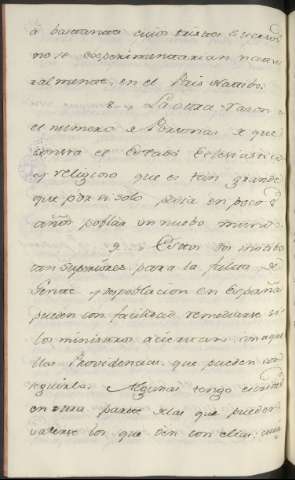 á bastantes cuios tristes sucesos
no se experimentarian natu-
ralmente, en el Pais Nativo.
8. y La otra razon
el numero de Personas de que
consta el Estado Eclesiastico
y religioso que es tan grande
que por si solo podia en pocos
años poblar un nuevo mundo
9. Estos dos motibos
tan superiores para la falta de
Gente y despoblacion en España
pueden con facilidad remediarse si
los ministros aciertan con aque-
llas Providencias que pueden con-
seguirlo. Algunas tengo escritas
en otra parte de las que pueden
valerse los que den con ellas,